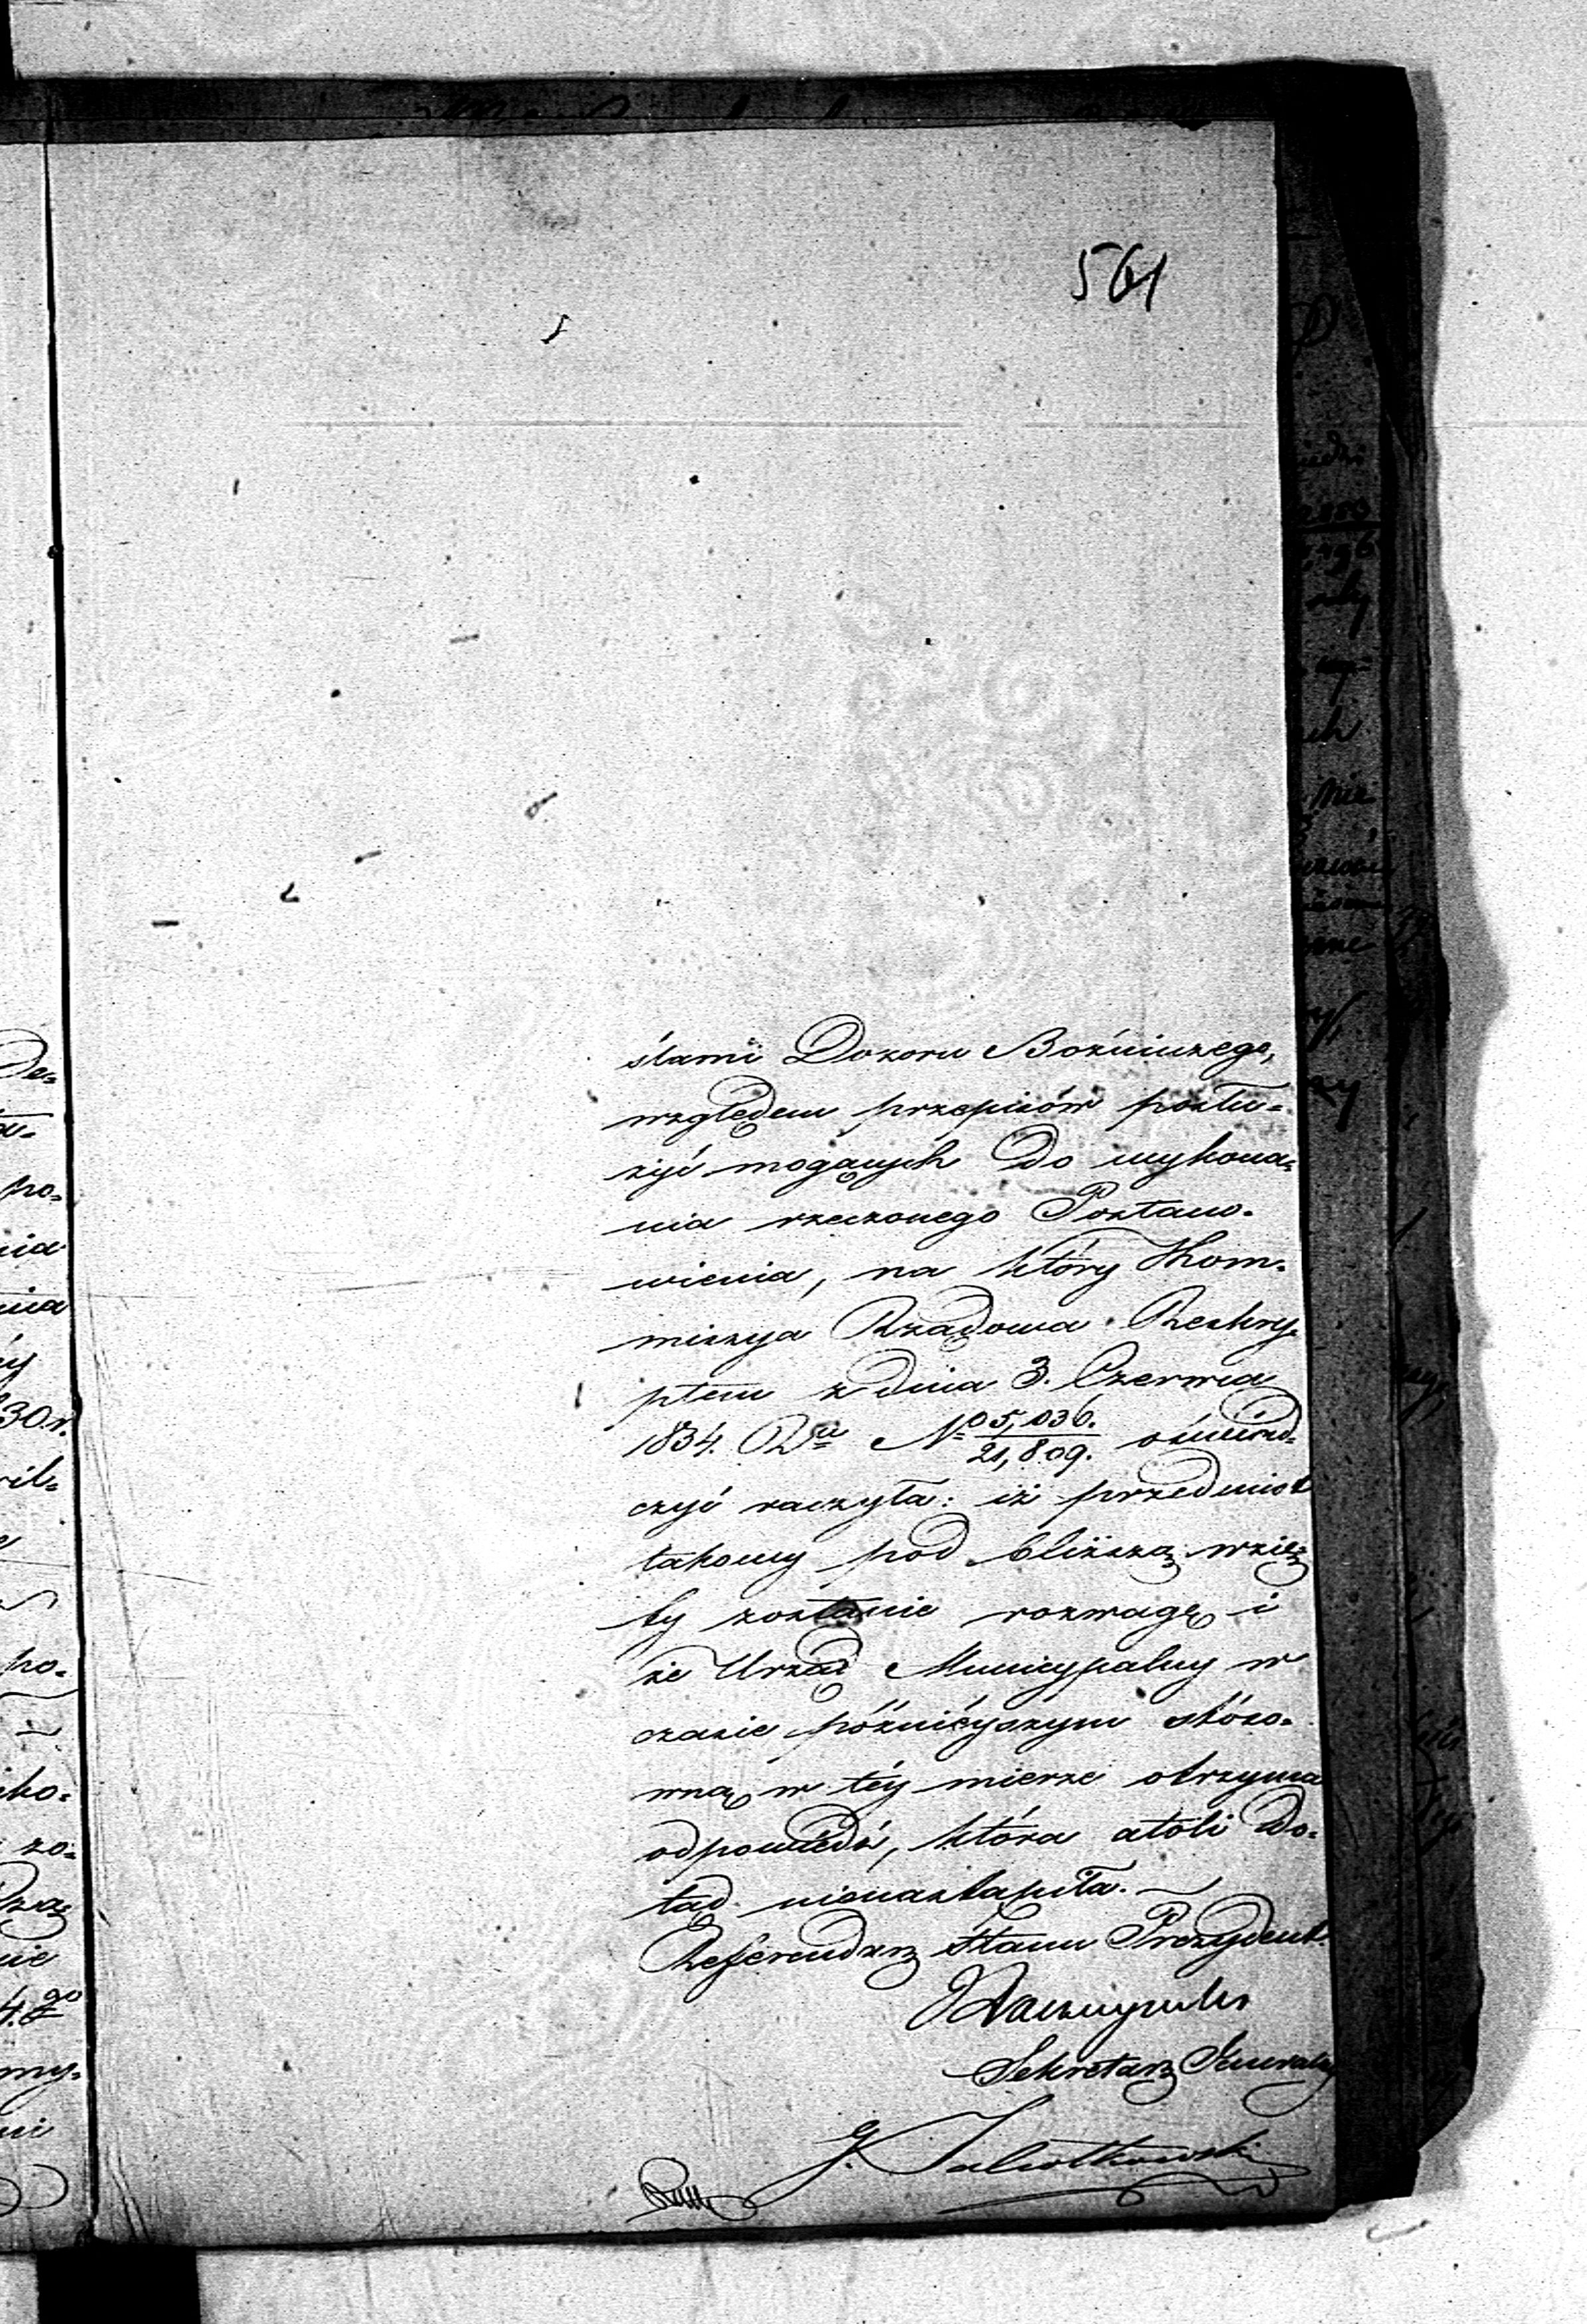 561
ślami Dozoru Bożniczego,
względem przepisów posłu-
żyć mogących do wykona-
nia rzeczonego Postano-
wienia, na który Kom-
missya Rządowa Reskry-
ptem z dnia 3. Czerwca
1834. Ru No 5,036./21,809. oświad-
czyć raczyła: iż przedmiot
takowy pod bliższą wzię-
ty zostanie rozwagę i
że Urząd Municypalny w
czasie późniéyszym stóso-
wną w téy mierze otrzyma
odpowiedź, która atoli do-
tąd nienastąpiła.
Referendarz Stanu Prezydent.
Sekretarz Generalny
G. Jabłotkowski